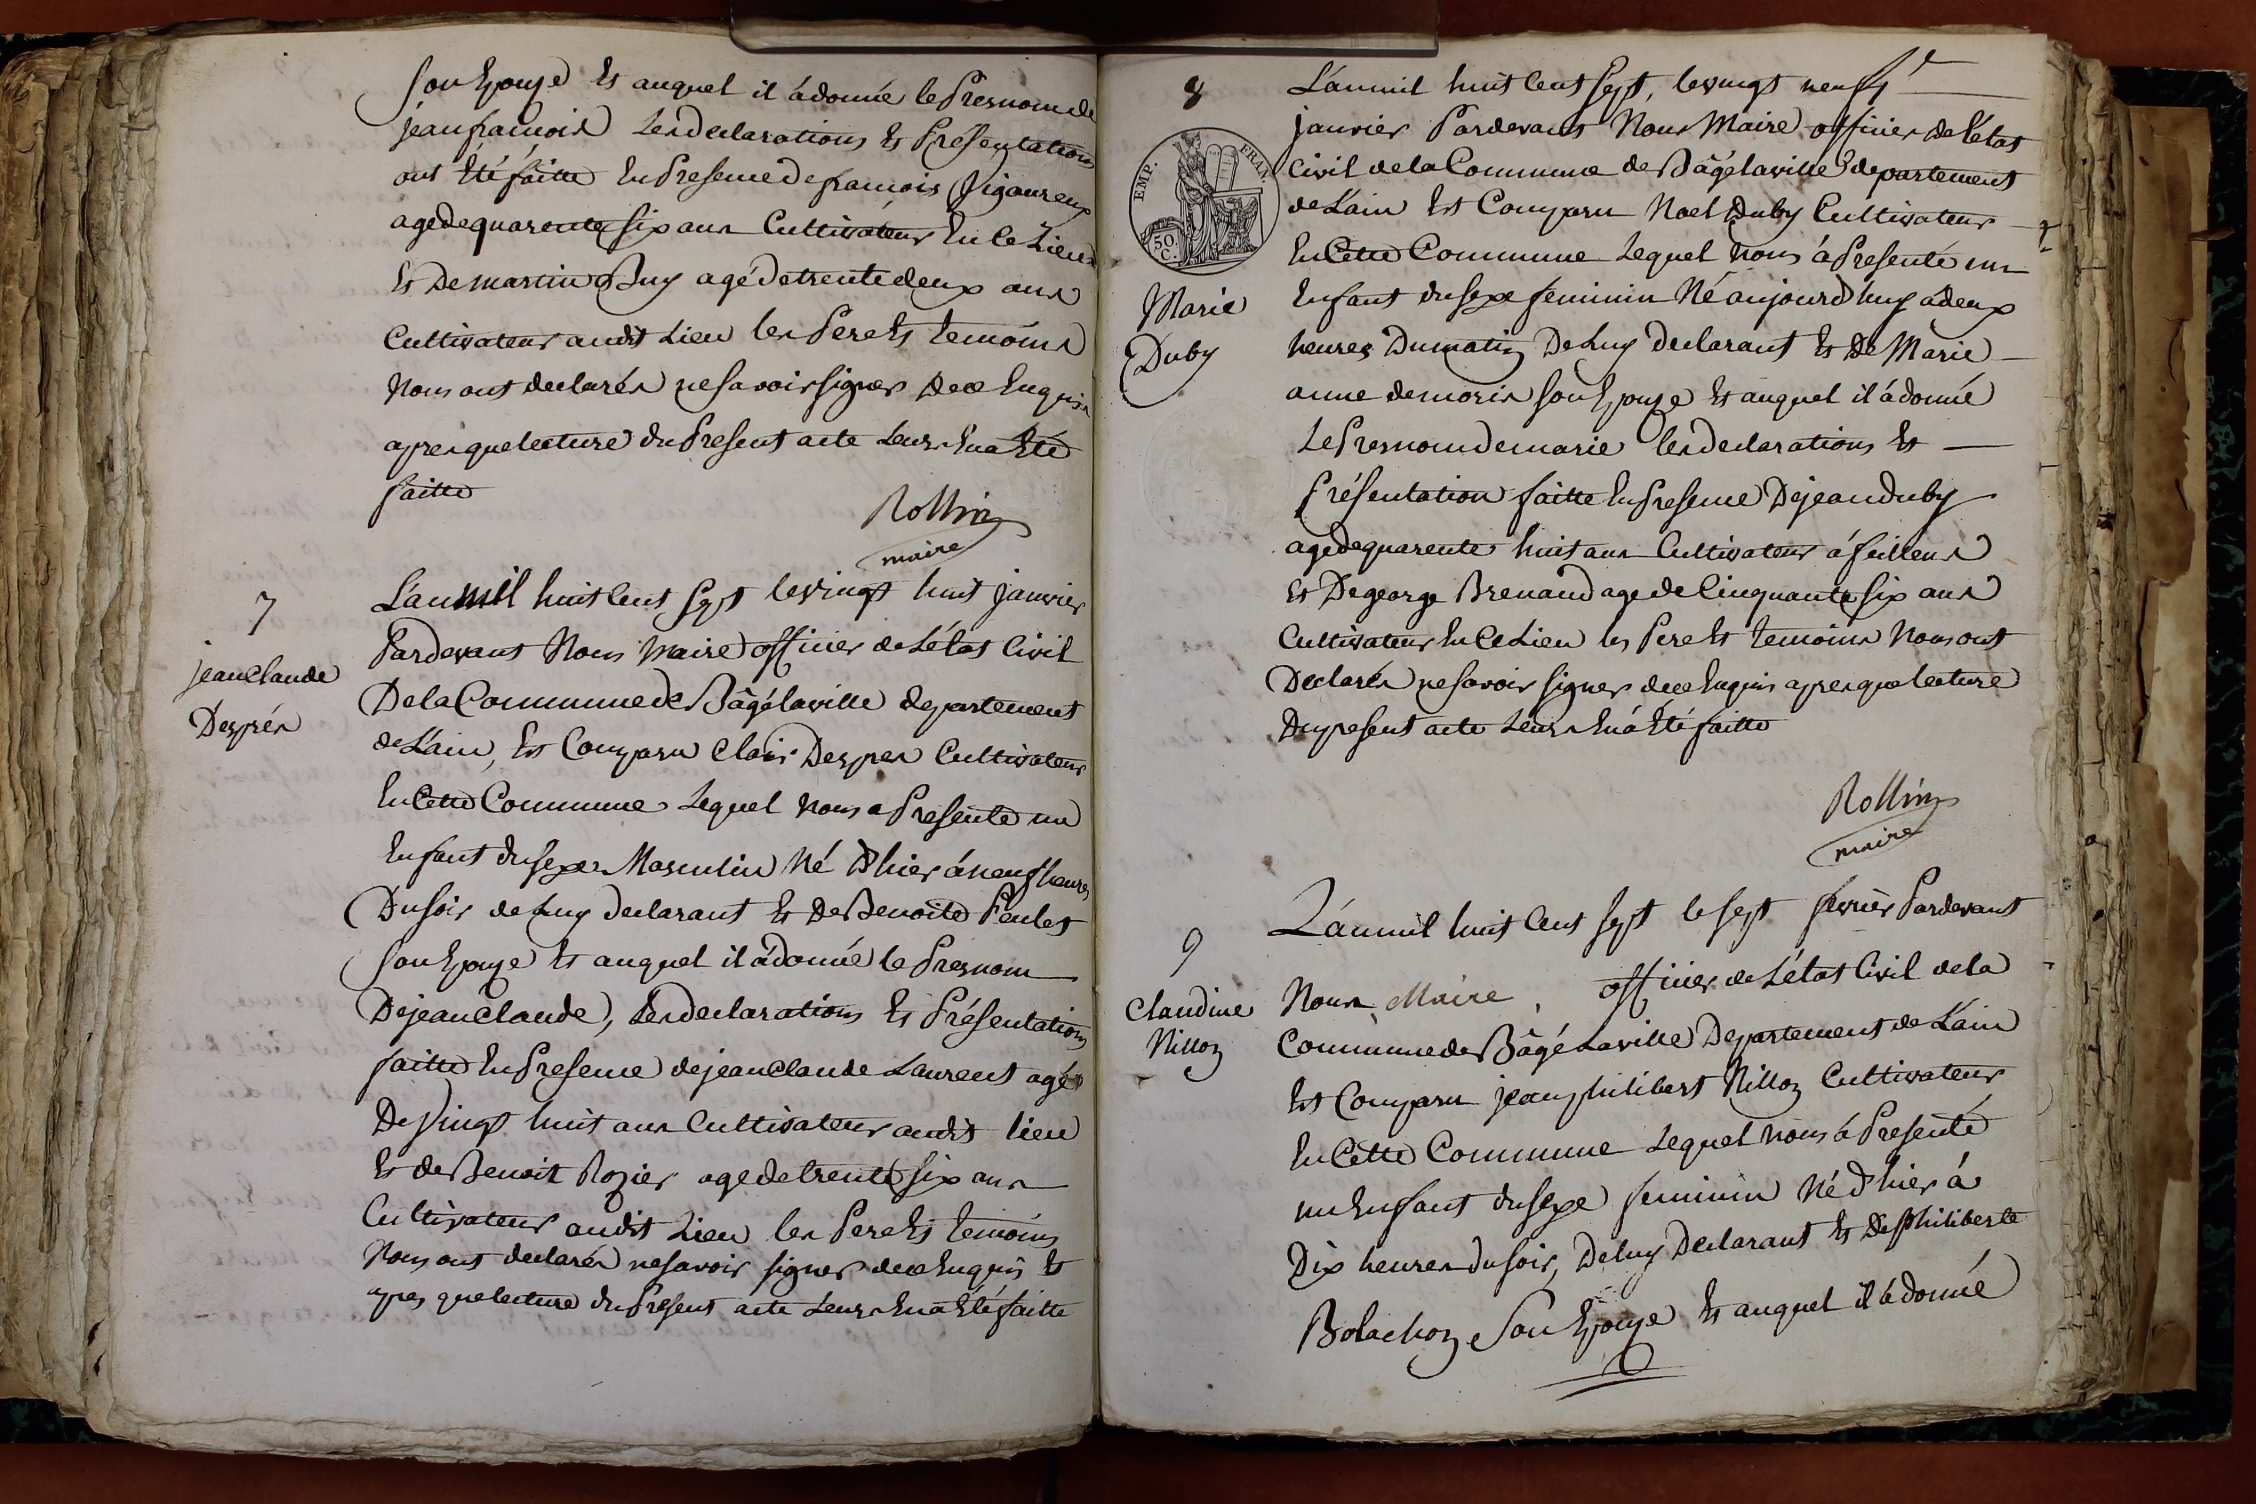 son Epouse Et auquel il à donné le Presnom de
jean francois Les declarations Et Présentations
ont Eté faitte En Presence de francois Vigoureux
agé de quarente six ans Cultivateur En ce Lieu
Et De martin Buy agé de trente deux ans
Cultivateur audit Lieu les Pere Et temoins
Nous ont declarés ne savoir signer De ce Enquis
apres que lecture du Present acte Leurs En a Eté
faitte
Rollin
maire
7
jean Claude
Després
L'an mil huit Cent sept le vingt huit janvier
Pardevant Nous Maire officier de L'état Civil
De la Commune de Bâgélaville departement
de L'ain, Est Comparu Clair Despres Cultivateur
En Cette Commune Lequel Nous a Presenté un
Enfant du sexe Masculin Né D'hier à neuf heures
Du soir de Luy declarant Et De Benoite Peulet
son Epouse Et auquel il à donné le Presnom
De jean Claude, Les declarations Et Présentations
faitte En Presence de jean Claude Laurent agé
De Vingt huit ans Cultivateur audit lieu
Et de Benoit Rozier agé de trente six ans
Cultivateur audit Lieu les Pere Et temoins
Nous ont declarés ne savoir signer de ce Enquis Et
apres que lecture du Present acte Leurs En a Eté faitte
8
EMP. FRAN.
50.
C.
Marie
Duby
L'an mil huit Cent sept, le vingt neuf
janvier Pardevant Nous Maire officier de L'état
Civil de la Commune de Bâgélaville departement
de L'ain Est Comparu Noel Duby Cultivateur
En Cette Commune Lequel Nous à Presenté un
Enfant du sexe feminin Né aujourd'huy à deux
heures Du matin De Luy declarant Et De Marie
anne demoris son Epouse Et auquel il à donné
Le Presnom de marie les declarations Et
Présentation faitte En Presence De jean duby
agé de quarente huit ans Cultivateur à feillens
Et De george Brenaud agé de Cinquante six ans
Cultivateur En Ce Lieu les Pere Et temoins Nous ont
Declarés ne savoir signer de ce Enquis apres que lecture
Du present acte Leurs En à Eté faitte
Rollin
maire
9
Claudine
Nillon
L'an mil huit Cent sept le sept fevrier Pardevant
Nous Maire, officier de L'état Civil de la
Commune de Bâgé Laville Departement de L'ain
Est Comparu jean philibert Nillon Cultivateur
En Cette Commune Lequel Nous à Presenté
un Enfant du sexe feminin Né D'hier à
Dix heures du soir, De luy Declarant Et De Philiberte
Bolachon Son Epouse Et auquel il à donné